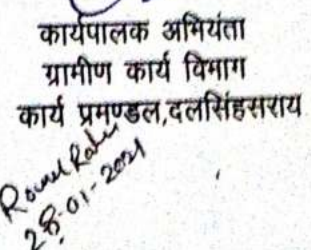 कार्यपालक अभियंता
ग्रामीण कार्य विभाग
कार्य प्रमण्डल,दलसिंहसराय
28-01-2021